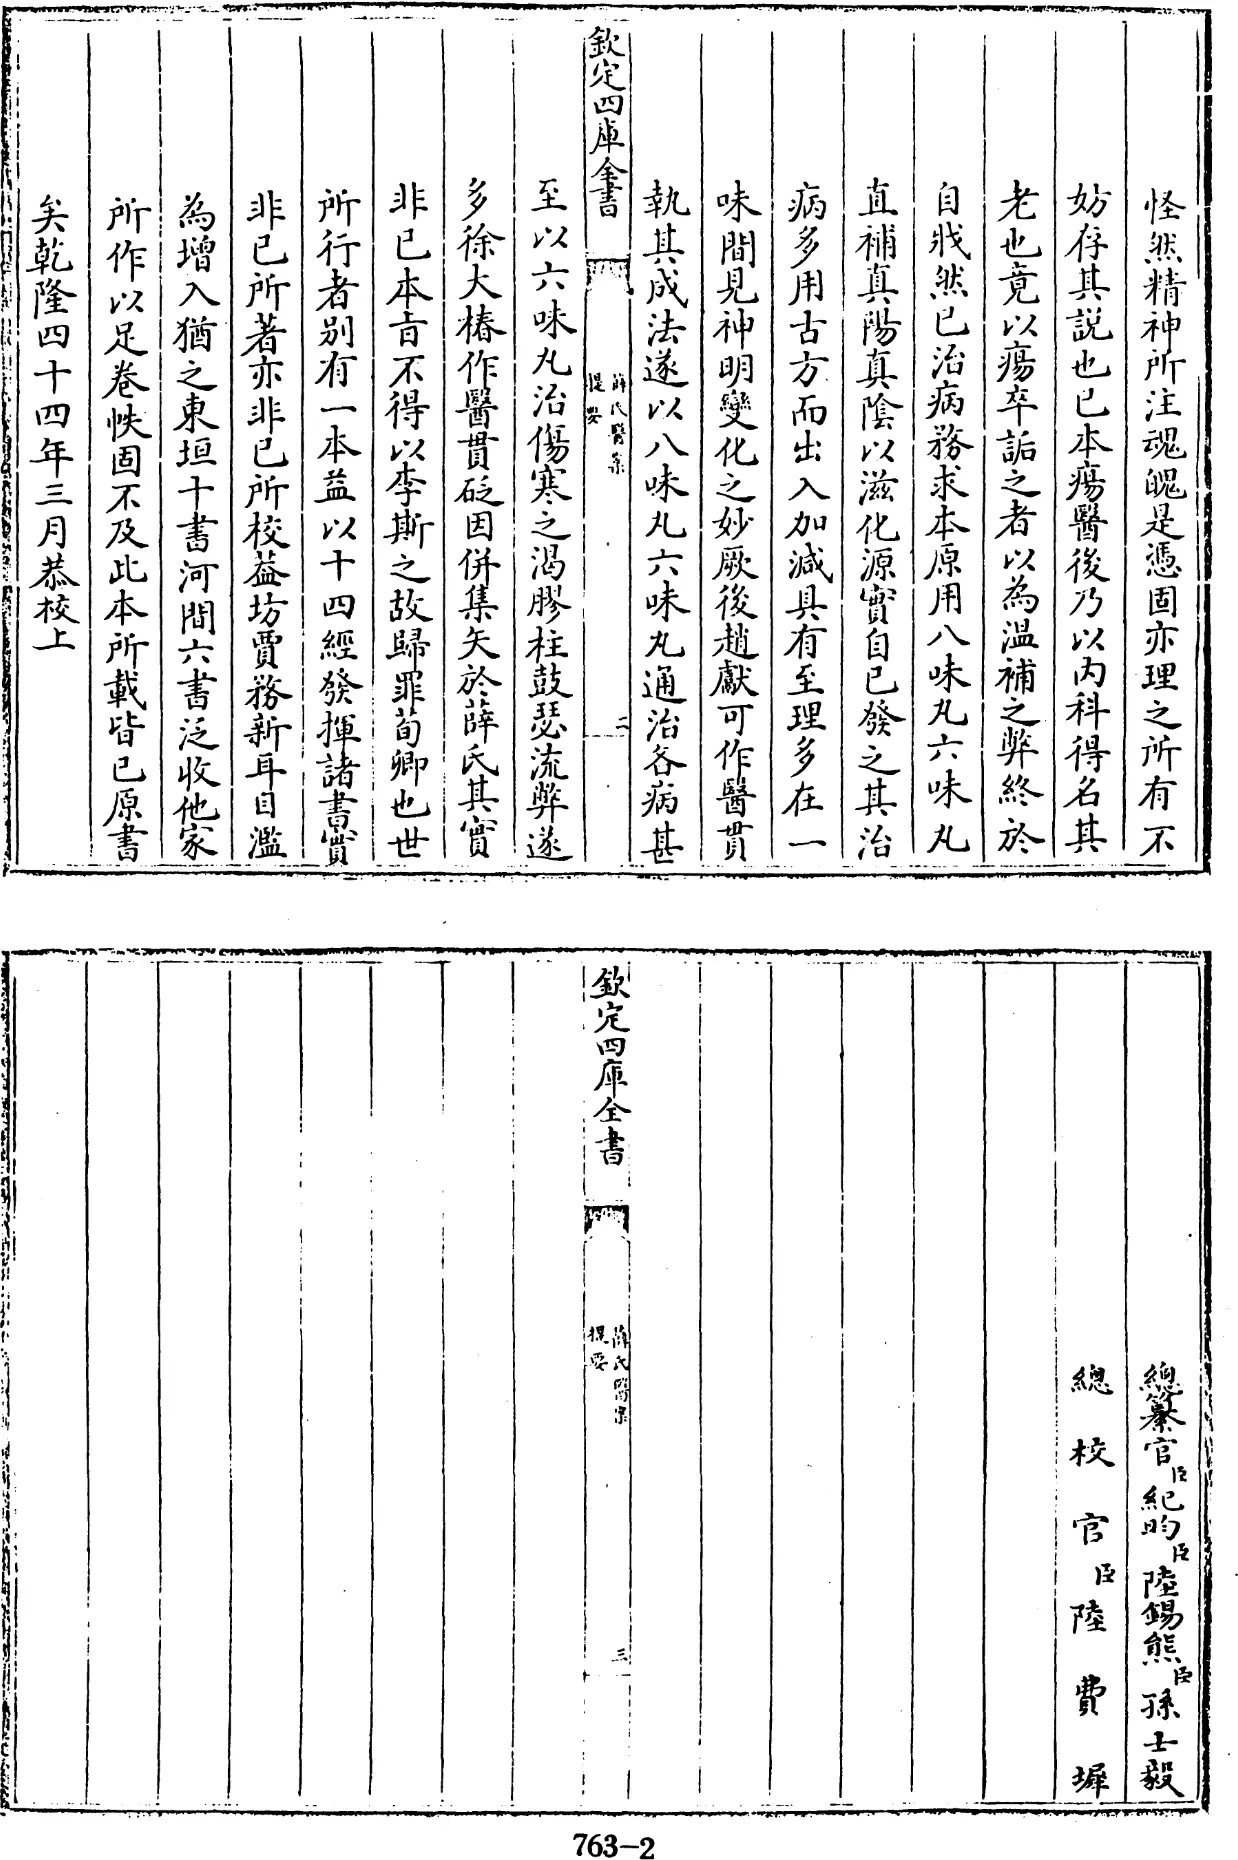 怪然精神所注魂魄是憑固亦理之所有不
妨存其說也已本瘍醫後乃以内科得名其
老也竟以瘍卒詬之者以為温補之弊終於
自戕然已治病務求本原用八味丸六味丸
直補真陽真陰以滋化源實自已發之其治
病多用古方而出入加減具有至理多在一
味間見神明變化之妙厥後趙獻可作醫貫
執其成法遂以八味丸六味丸通治各病甚
欽定四庫全書
薛氏醫案
提要
二
至以六味丸治傷寒之渴膠柱鼓瑟流弊遂
多徐大椿作醫貫砭因併集矢於薛氏其實
非已本旨不得以李斯之故歸罪荀卿也世
所行者别有一本益以十四經發揮諸書實
非已所著亦非已所校葢坊賈務新耳目濫
為增入猶之東垣十書河間六書泛收他家
所作以足卷帙固不及此本所載皆已原書
矣乾隆四十四年三月恭校上
總纂官臣紀昀臣陸錫熊臣孫士毅
總校官臣陸費墀
欽定四庫全書
薛氏醫案
提要
三
763-2